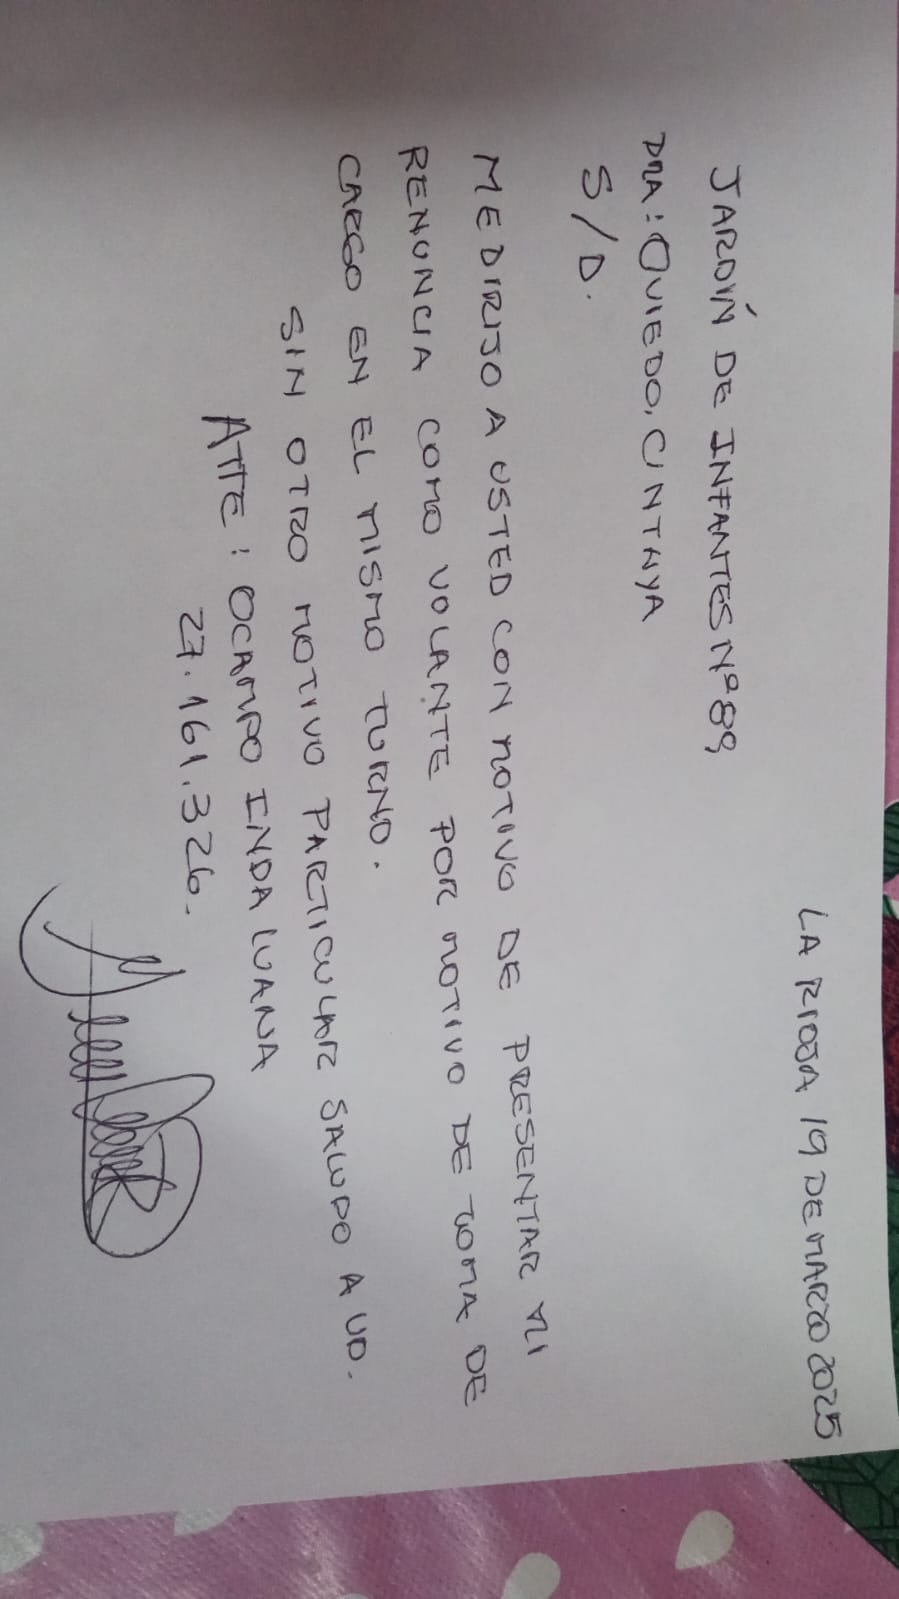 LA RIOJA 19 DE MARZO 2025
JARDÍN DE INFANTES Nº 89
DRA: OVIEDO, CINTHYA
S/D.
ME DIRIJO A USTED CON MOTIVO DE PRESENTAR MI
RENUNCIA COMO VOLANTE POR MOTIVO DE TOMA DE
CARGO EN EL MISMO TURNO.
SIN OTRO MOTIVO PARTICULAR SALUDO A UD.
ATTE: OCAMPO INDA LUANA
27.161.326.